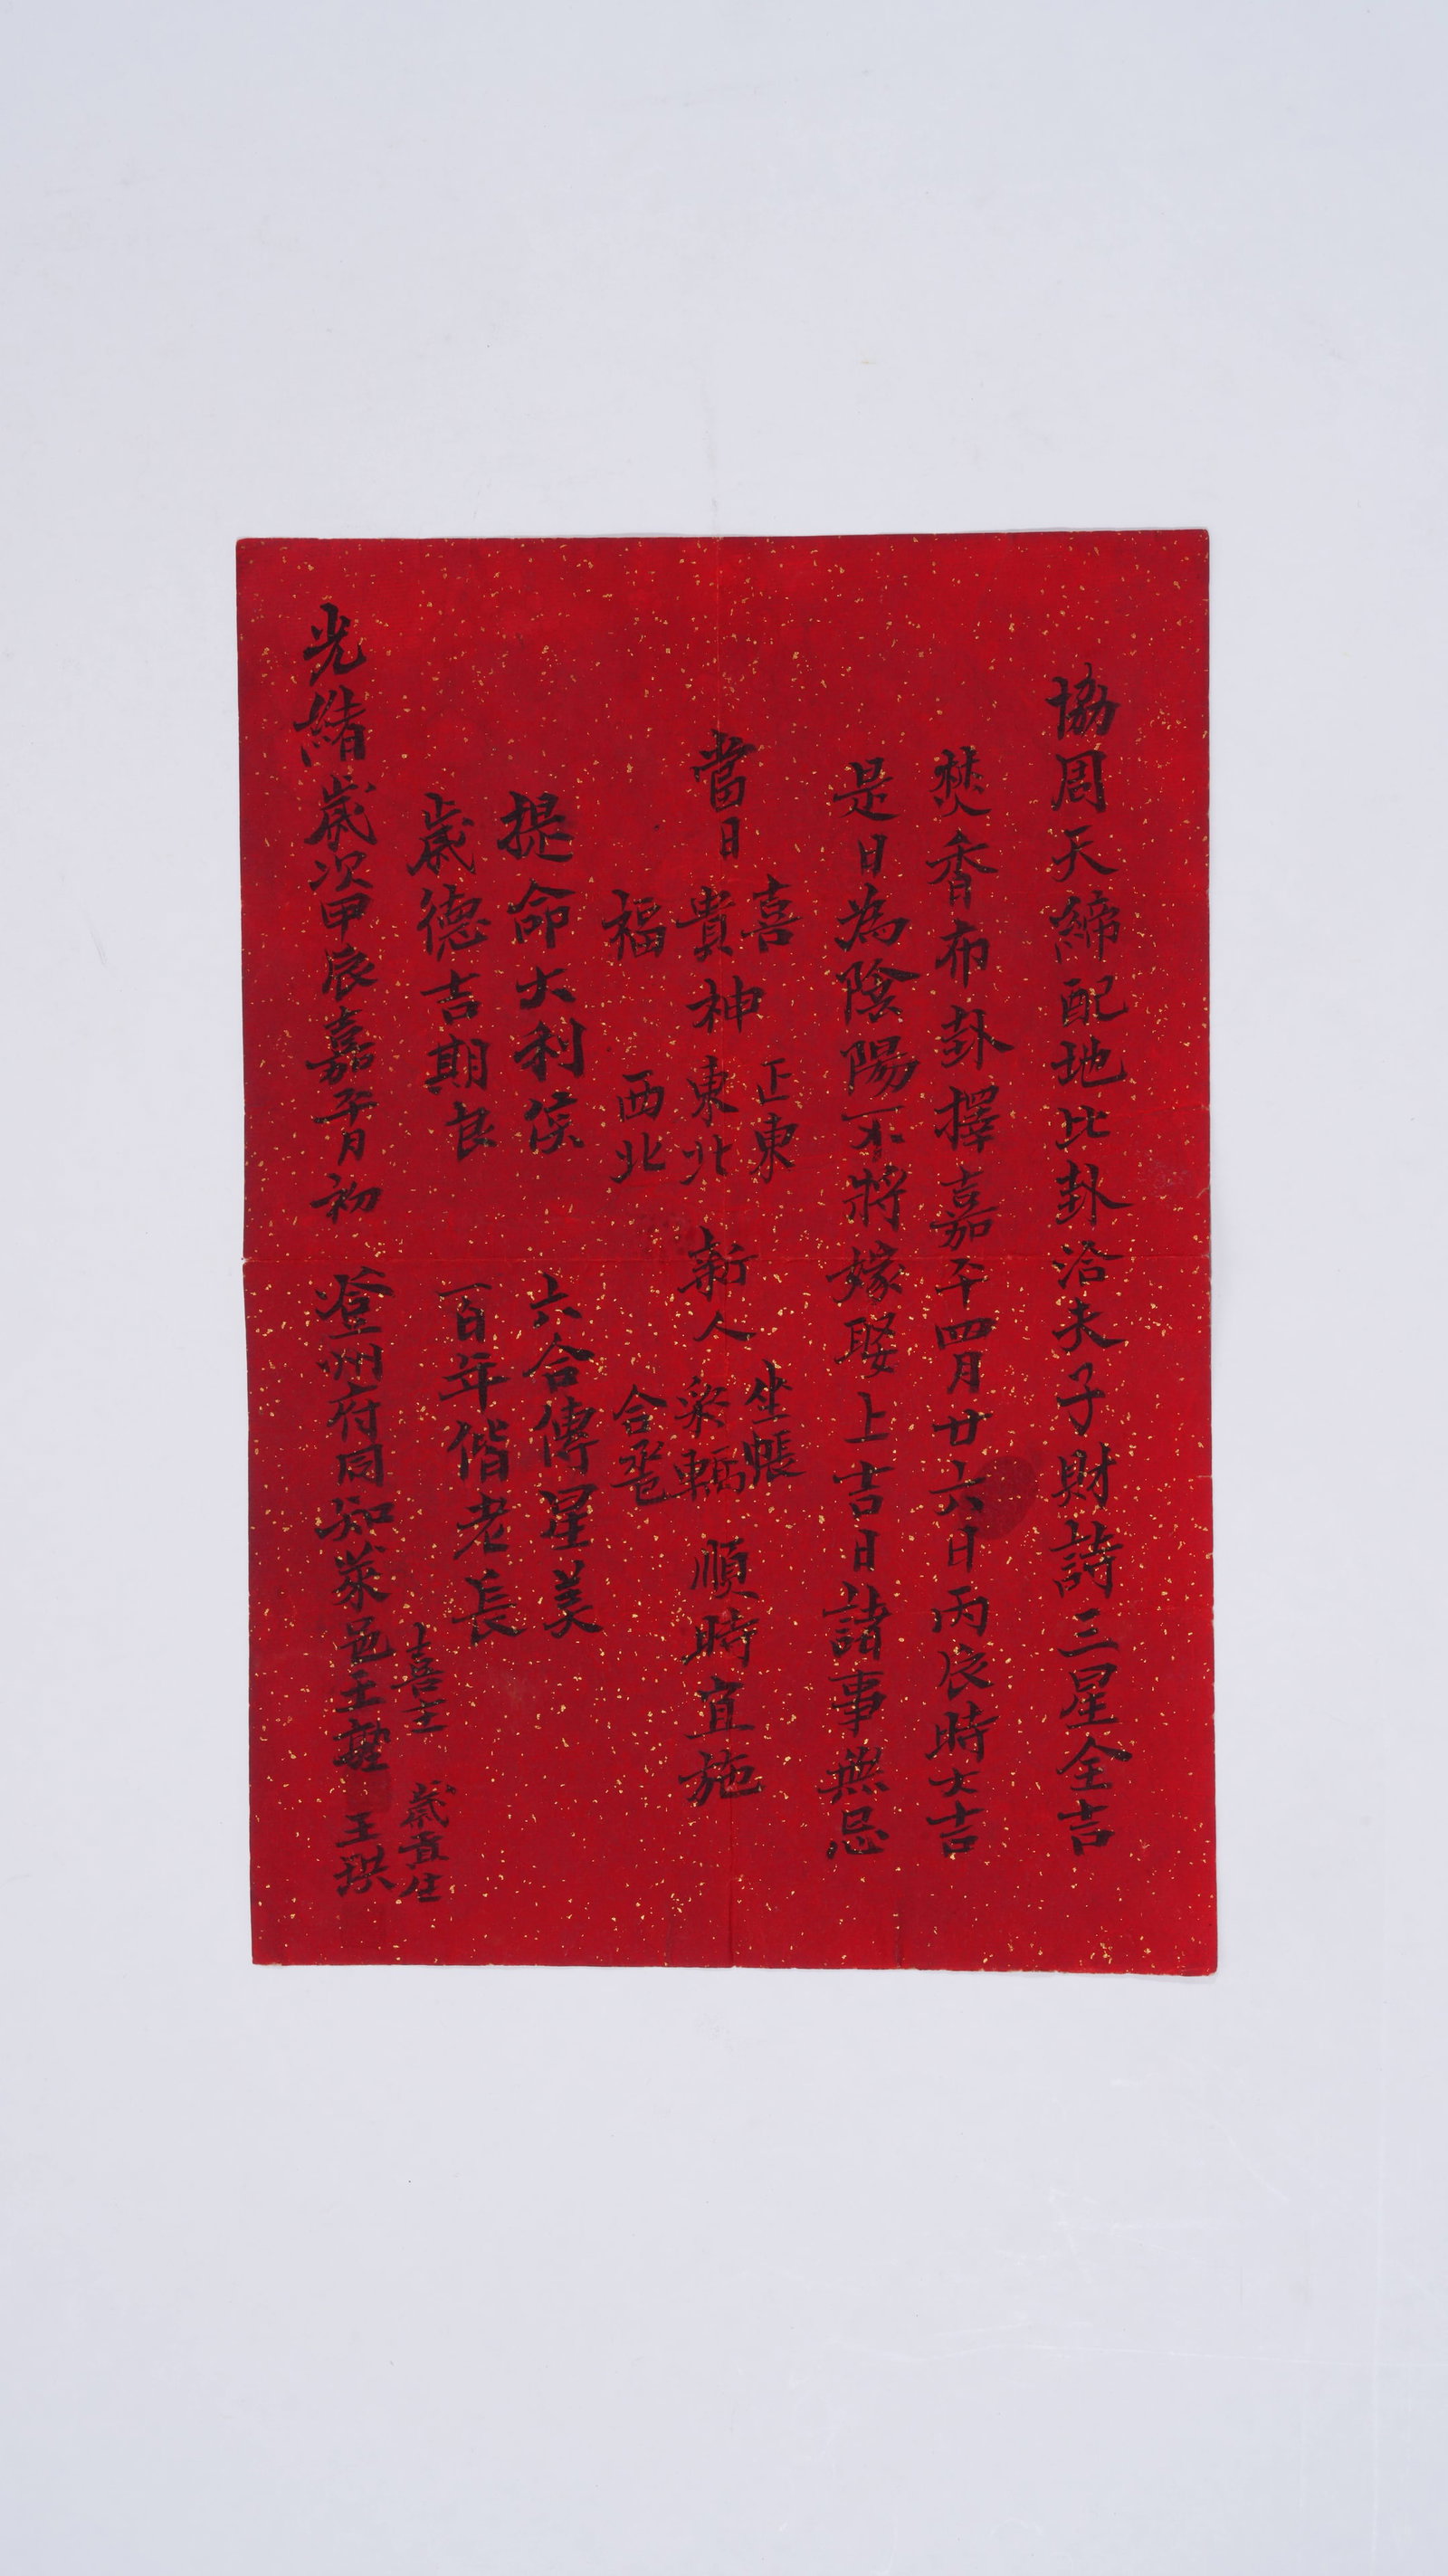 協周天締配地比卦洽夫子財詩三星全吉
焚香布卦擇嘉平四月廿六日丙辰時大吉
是日為陰陽不將嫁娶上吉日諸事無忌
喜 正東 坐帳
當日貴神東北 新人 順時宜施
福 西北 合巹
提命大利 六合傳星美
歲德吉期良 百年偕老長
喜主
光緒歲次甲辰嘉平月初 登州府同知萊邑王 王